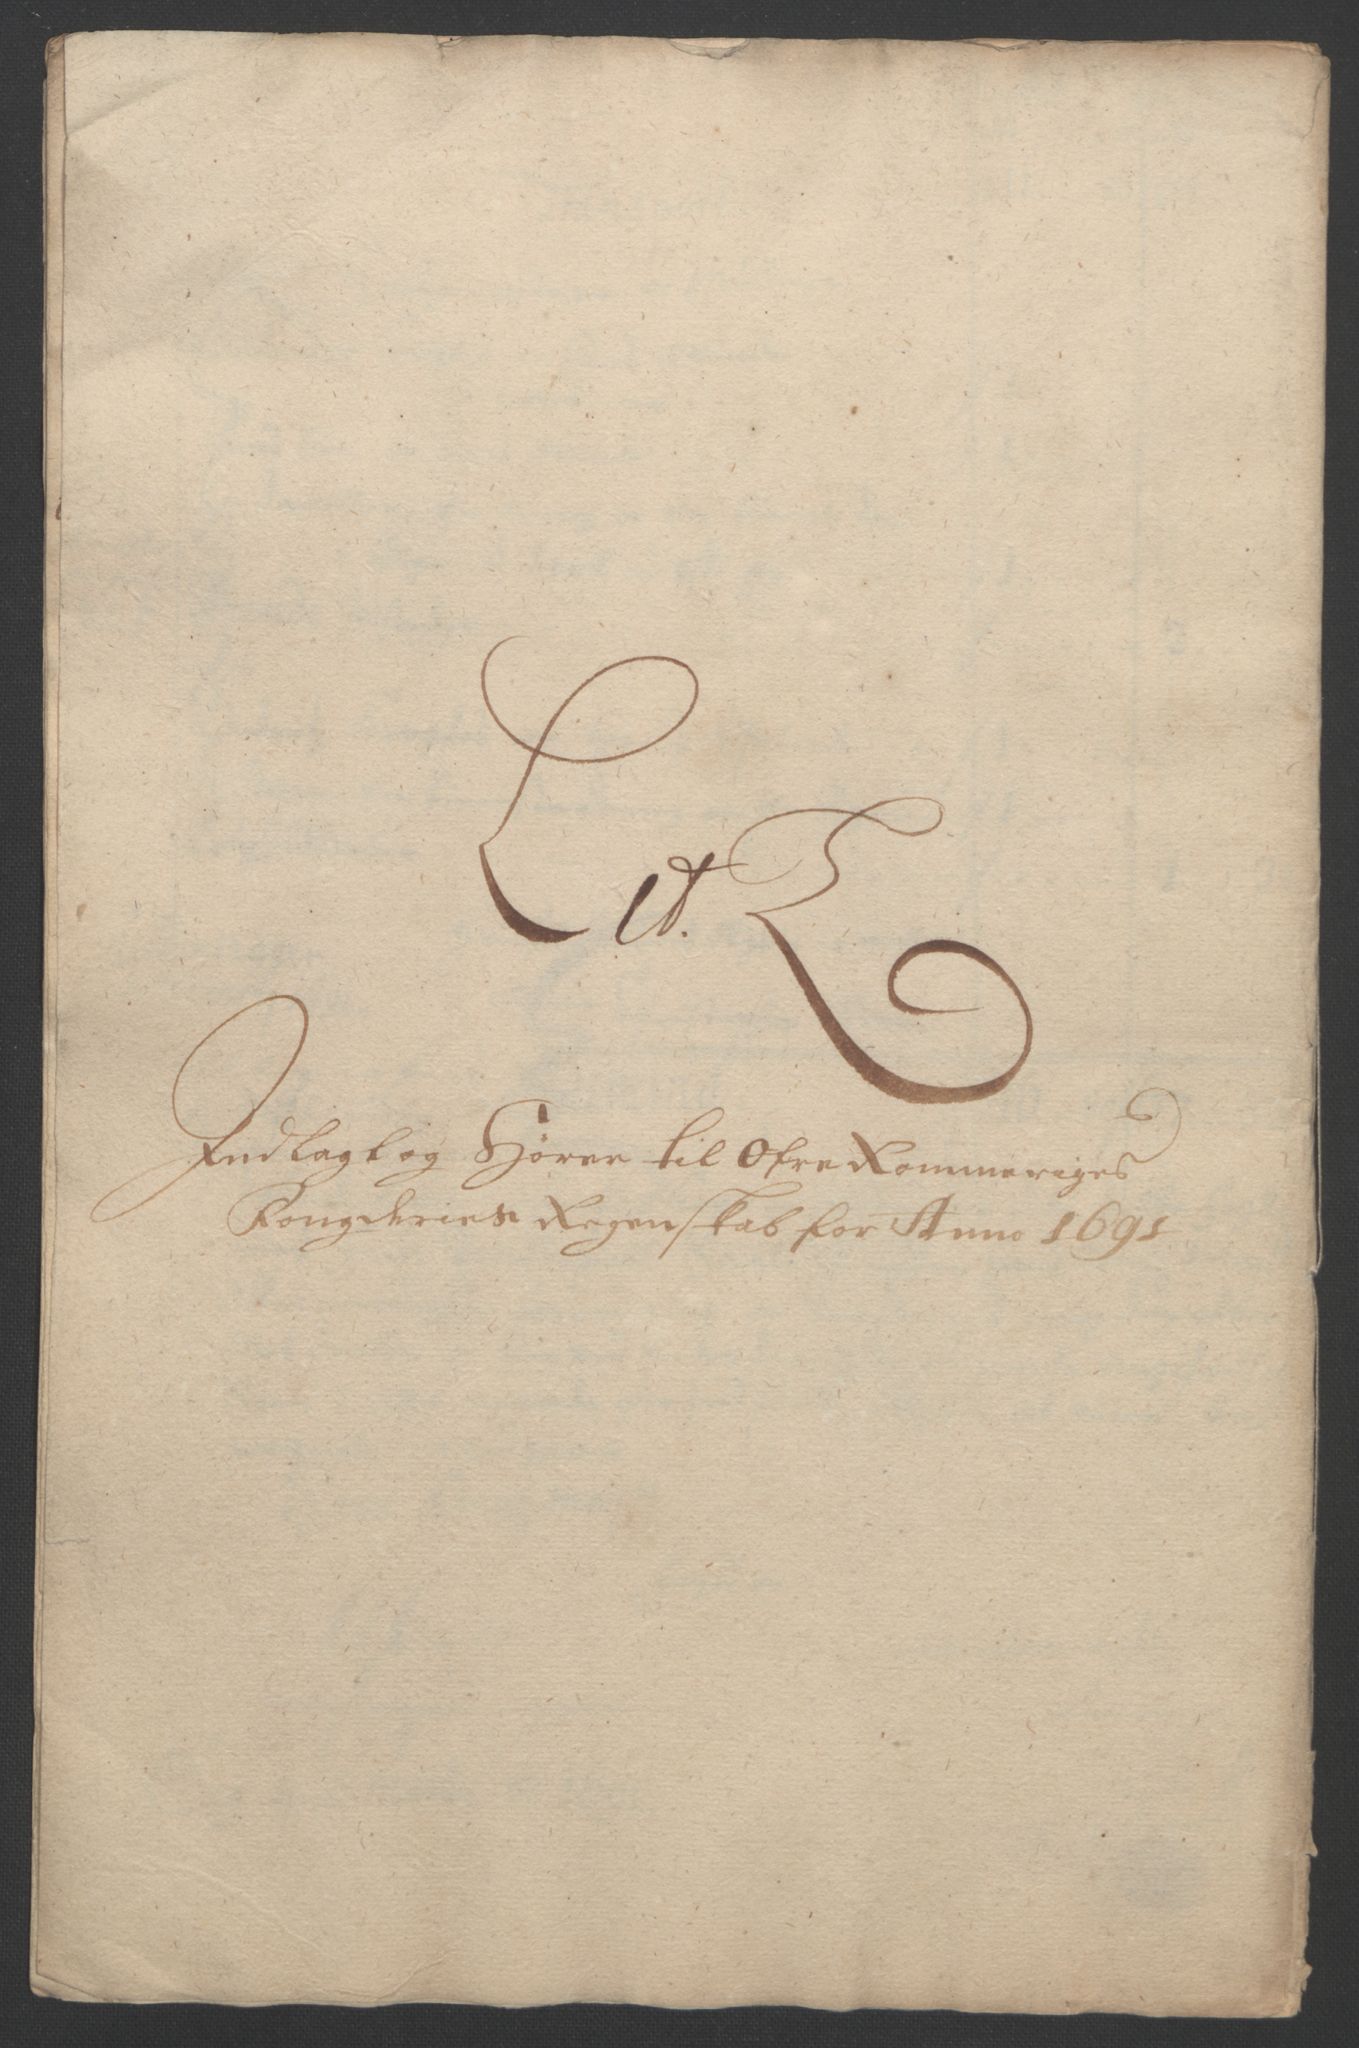 Lit. E
Indlagt og Hörer til Ofre Rommeriges
Fougderies Regenskab for Anno 1691